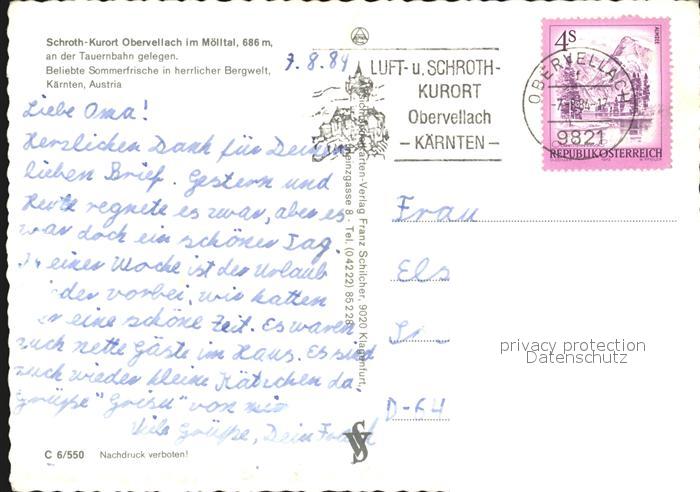 Schroth-Kurort Obervellach im Mölltal, 686 m,
an der Tauernbahn gelegen.
Beliebte Sommerfrische in herrlicher Bergwelt,
Kärnten, Austria
7.8.84
Liebe Oma!
Herzlichen Dank für Deinen
lieben Brief. Gestern und
Heute regnete es zwar, aber es
war doch ein schöner Tag.
In einer Woche ist der Urlaub
der vorbei, wir hatten
eine schöne Zeit. Es waren
auch nette Gäste im Haus. Es sind
auch wieder kleine Kätzchen da,
Grüße "Grisu" von mir
Viele Grüße, Dein
C 6/550 Nachdruck verboten!
LUFT- u. SCHROTH-
KURORT
Obervellach
- KÄRNTEN -
OBERVELLACH
9821
4 S
ALMSEE
REPUBLIK ÖSTERREICH
Franz Schilcher, 9020 Klagenfurt,
Tel. (04222) 85 2 28
Frau
Els
D-64
privacy protection
Datenschutz